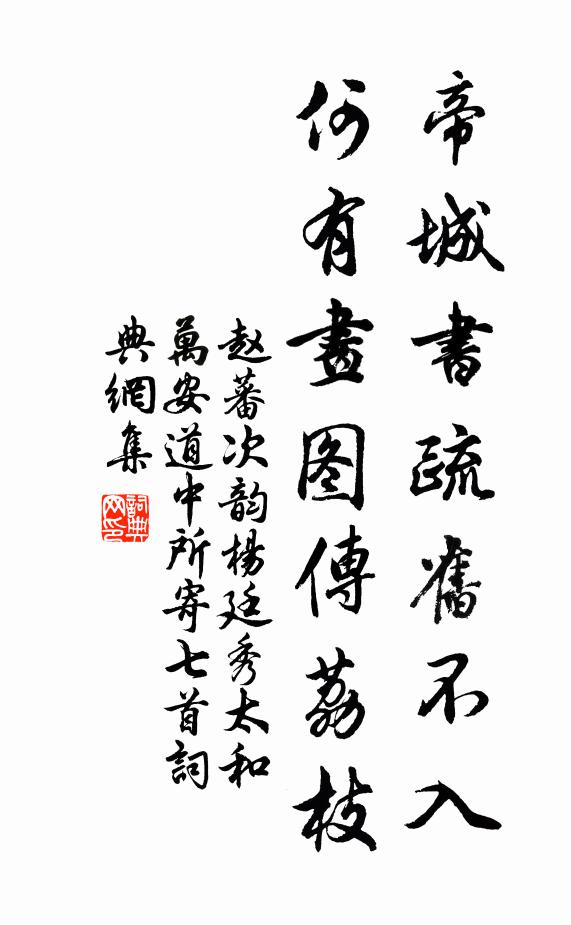 帝城書疏舊不入
何有畫图傳荔枝
赵蕃次韵楊廷秀太和
萬安道中所寄七首詞
典網集
詞典网印